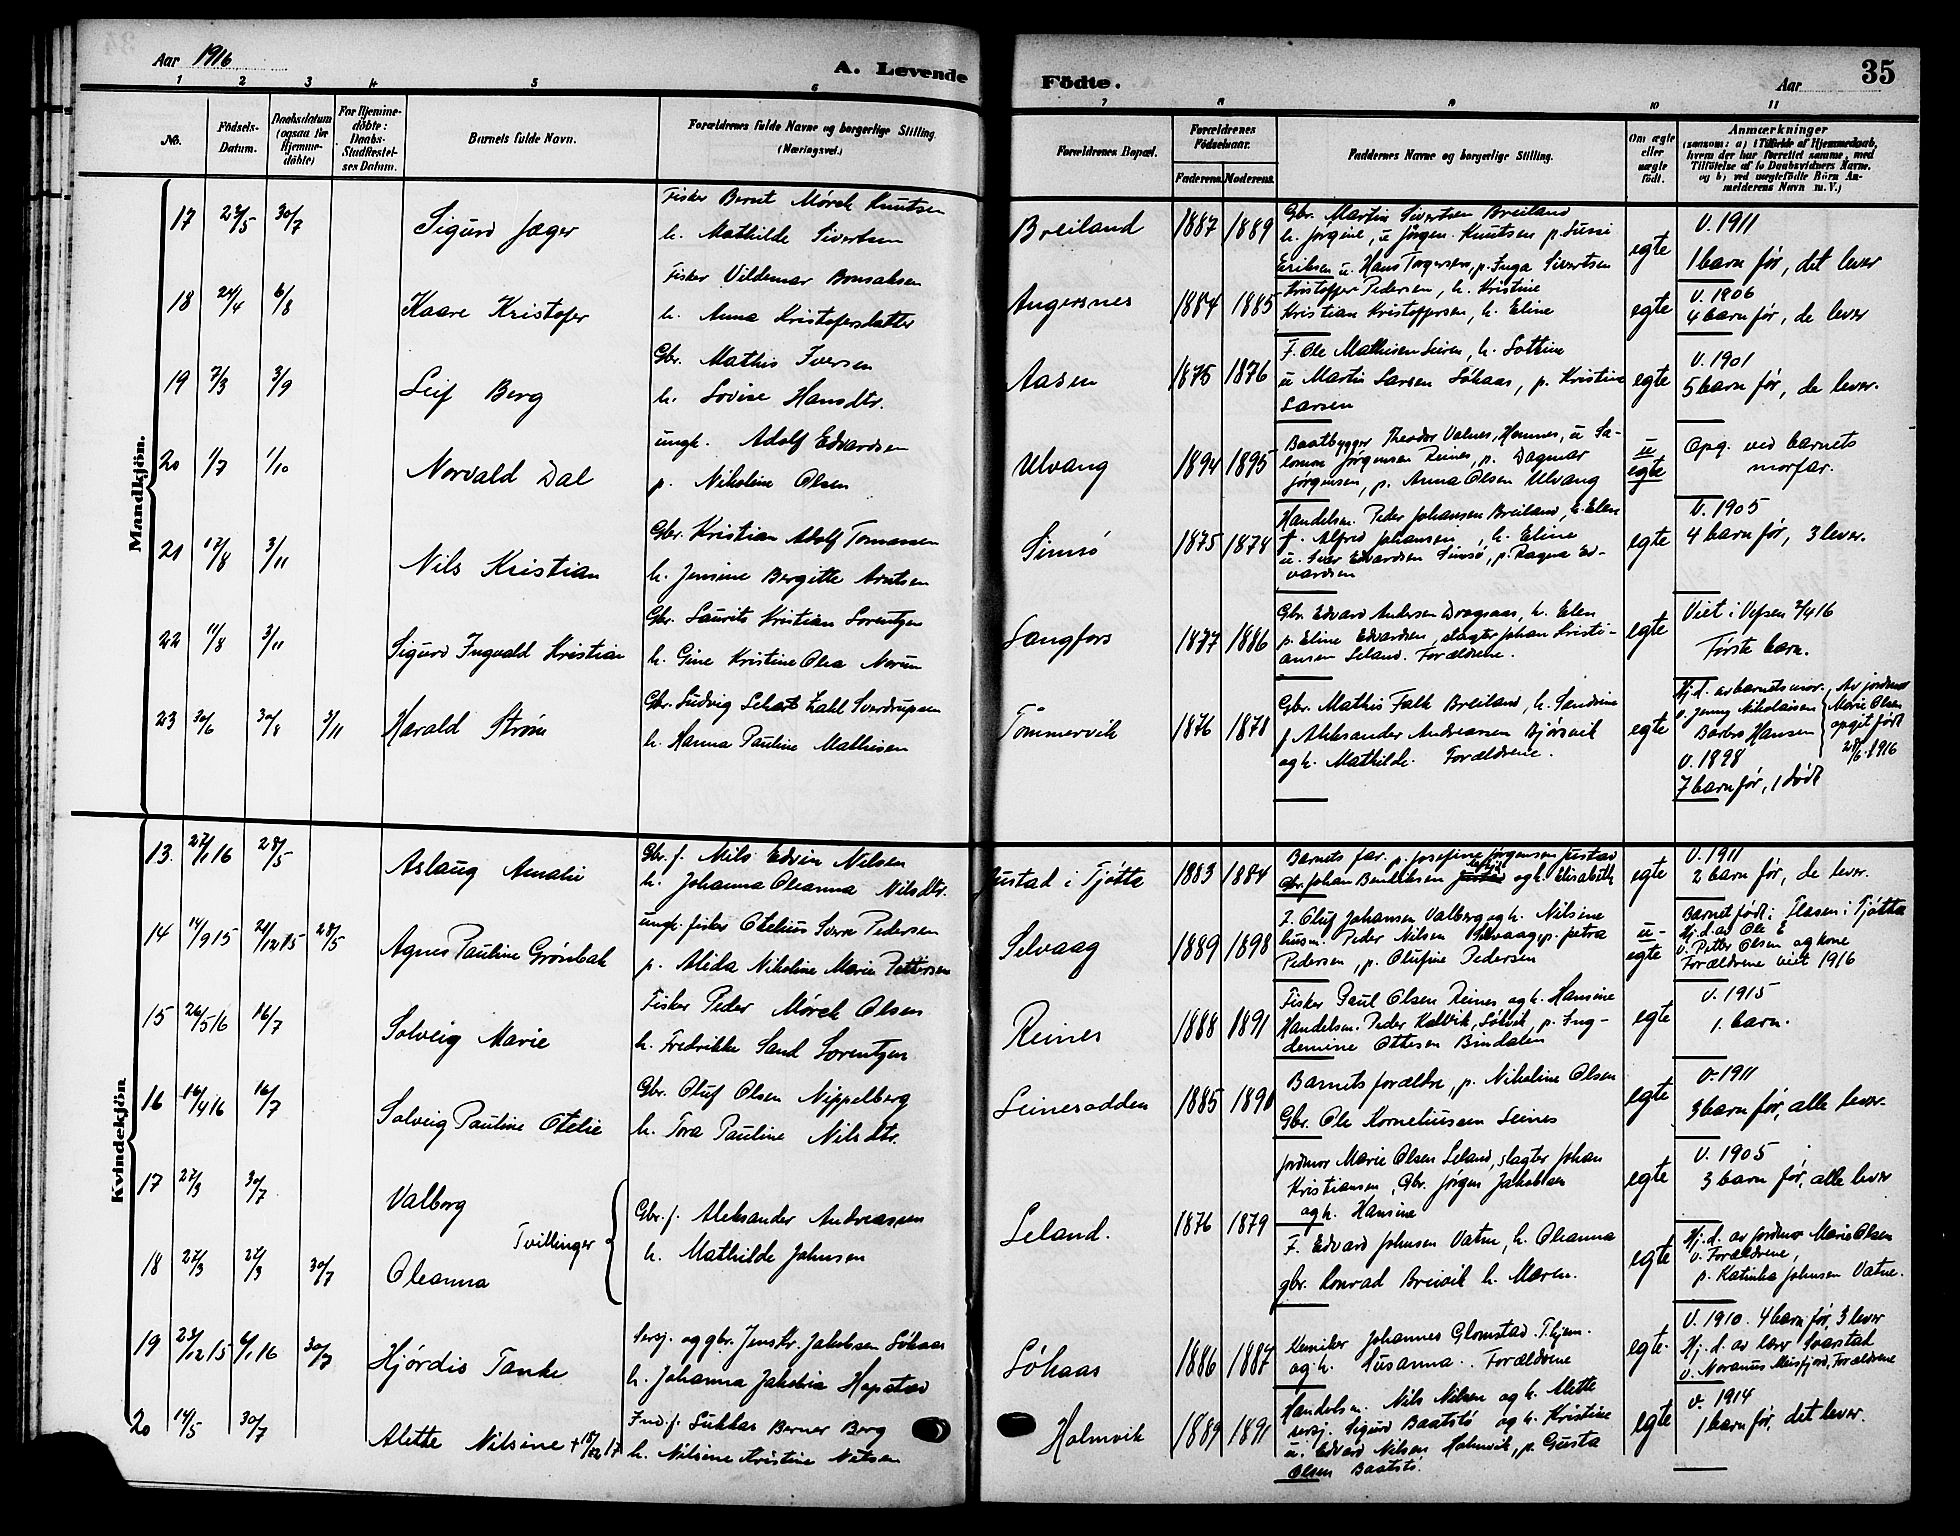 Aar 1916
A. Levende Födte.
Aar
35
1 2 3 4 5 6 7 8 9 10 11
No.
Födsels-Datum.
Daabsdatum (ogsaa for Hjemmedöbte)
For Hjemmedöbte: Daabs-Stadfæstelses Datum.
Barnets fulde Navn.
Forældrenes fulde Navne og borgerlige Stilling. (Næringsvei.)
Forældrenes Bopæl.
Forældrenes Födselsaar.
Faderens. Moderens.
Faddernes Navne og borgerlige Stilling.
Om ægte eller uægte födt.
Anmærkninger
(saasom: a) i Tilfælde af Hjemmedaab, hvem der har forrettet samme, med Tilföielse af to Daabsvidners Navne. og b) ved uægtefödte Börn Anmelderens Navn m. V.)
Mandkjön.
17 23/5 30/7 Sigurd Jæger
Fisker Bernt Mörch Knutsen
h. Mathilde Sivertsen
Breiland 1887 1889
Gbr. Martin Sivertsen Breiland
h. Jörgine, u Jörgen Knutsen p. Sussi
Eriksen u. Hans Torgersen, p. Inga Sivertsen
egte
V. 1911
1 barn før, det lever
18 24/4 6/8 Kaare Kristofer
Fisker Vildemar Bonsaksen
h. Anna Kristofersdatter
Angersnes 1884 1885
Kristoffer Pedersen, h. Kristine
Kristian Kristoffersen, h. Eline
egte
V. 1906
4 barn før, de lever
19 7/3 3/9 Leif Berg
Gbr. Mathis Iversen
h. Lovise Hansdtr.
Aasen 1875 1876
F. Ole Mathisen Leiren, h. Lottine
u Martin Larsen Söhaas, p. Kristine
Larsen
egte
V. 1901
5 barn før, de lever.
20 1/7 1/10 Norvald Dal
ungk. Adolf Edvardsen
p. Nikoline Olsen
Ulvang 1894 1895
Baatbygger Theodor Valnes, Hemnes, u Sa-
lomon Jörgensen Reines, p. Dagmar
Jörgensen, p. Anna Olsen Ulvang
u
egte
Opg. ved barnets
morfar.
21 17/8 3/11 Nils Kristian
Gbr. Kristian Adolf Tomassen
h. Jensine Bergitte Arntsen
Simsö 1875 1874
Handelsm. Peder Johansen Breiland, h. Elen
f. Alfred Johansen, h. Eline
u. Iver Edvardsen Simsö, p. Ragna Ed-
vardsen
egte
V. 1905
4 barn før, 3 lever.
22 11/8 3/11 Sigurd Ingvald Kristian
Gbr. Laurits Kristian Lorentzen
h. Gine Kristine Olea Norum
Langfors 1877 1886
Gbr. Edvard Andersen Dragsaas, h. Elen
p. Eline Edvardsen, slagter Johan Kristi-
ansen Leland. Forældrene.
egte
Viet i Vefsen 2/4 16
Første barn.
23 30/6 30/8 3/11 Harald Ström
Gbr. Ludvig Zahl Sverdrupsen
h. Hanna Pauline Mathisen
Tömmervik 1876 1878
Gbr. Mathis Falk Breiland, h. Sandrine
f Aleksander Andreassen Bjørnvik
og h. Mathilde. Forældrene.
egte
Hj. d. av barnets mor.
Jenny Nikolaisen
Barbro Hansen
V. 1898
7 barn før, 1 dødt
Av jordmor
Marie Olsen
opgit født
28/6 1916
Kvindekjön
13. 27/1 16 28/5 Aslaug Amalie
Gbr. f. Nils Edvin Nilsen
h. Johanna Oleanna Nilsdtr.
Justad i Tjötta 1883 1884
Barnets far. p. Josefine Jörgensen Justad
Gbr. Johan Bendiksen og h. Elisabeth
egte
V. 1911
2 barn før, de lever.
14 14/9 15 26/12 15 28/5 Agnes Pauline Grönbak
ungk. fisker Otelius Sverre Pedersen
p. Alida Nikoline Marie Pettersen
Selvaag 1889 1898
F. Oluf Johansen Valberg og h. Nilsine
husm. Peder Nilsen Selvaag, p. Petra
Pedersen, p. Olufine Pedersen
u-
egte
Barnet født i Flasen i Tjötta
Hj. d. av Ole E
v. Petter Olsen og kone
Forældrene viet 1916
15 26/5 16 16/7 Solveig Marie
Fisker Peder Mörch Olsen
h. Fredrikke Sand Lorentzen
Reines 1888 1891
Fisker Paul Olsen Reines og h. Hansine
Handelsm. Peder Kalvik, Sökvik, p. Ing-
demine Ottesen Bindalen
egte
V. 1915
1. barn.
16 16/4 16 16/7 Solveig Pauline Otelie
Gbr. Oluf Olsen Nippelberg
h. Tora Pauline Nilsdtr.
Leinesodden 1885 1890
Barnets forældre, p. Nikoline Olsen
Gbr. Ole Korneliussen Leines
egte
V. 1911
3 barn før, alle lever.
17 27/3 30/7 Valborg
18 27/3 27/3 30/7 Oleanna
Tvillinger
Gbr. f. Aleksander Andreassen
h. Mathilde Johnsen
Leland. 1876 1879
Jordmor Marie Olsen Leland, slagter Johan
Kristiansen, Gbr. Jörgen Jakobsen
og h. Hansine
egte
V. 1905
3 barn før, alle lever
F. Edvard Johnsen Vatne, h. Oleanna
gbr. Konrad Breivik h. Maren.
egte
Hj. d. av jordmor Marie Olsen
v. Forældrene,
p. Katinka Johnsen Vatne.
19 23/12 15 6/1 16 30/7 Hjördis Tanke
Sersj. og gbr. Jens Kr. Jakobsen Söhaas
h. Johanna Jakobia Hapstad
Söhaas 1886 1887
Kemiker Johannes Glomstad T.hjem.
og h. Susanna. Forældrene
egte.
V. 1910. 4 barn før, 3 lever
Hj. d. av lær Svarstad
v. Noranus Meisfjord, Forældrene
20 14/5 30/7 Alette Nilsine + 18/12 17
Ind. f. Lukkas Berner Borg
h. Nilsine Kristine Nilsen
Holmvik 1889 1891
Handelsm. Nils Nilsen og h. Alette
sersj. Sigurd Baatstö og h. Kristine
u. Edvard Nilsen Holmvik, p. Gusta
Olsen Baatstö.
egte
V. 1914
1 barn før, det lever.